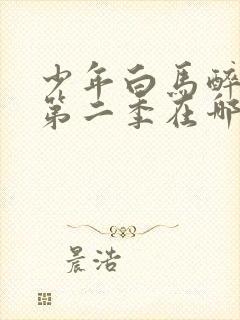 少年白馬醉
第二季在哪
晨浩